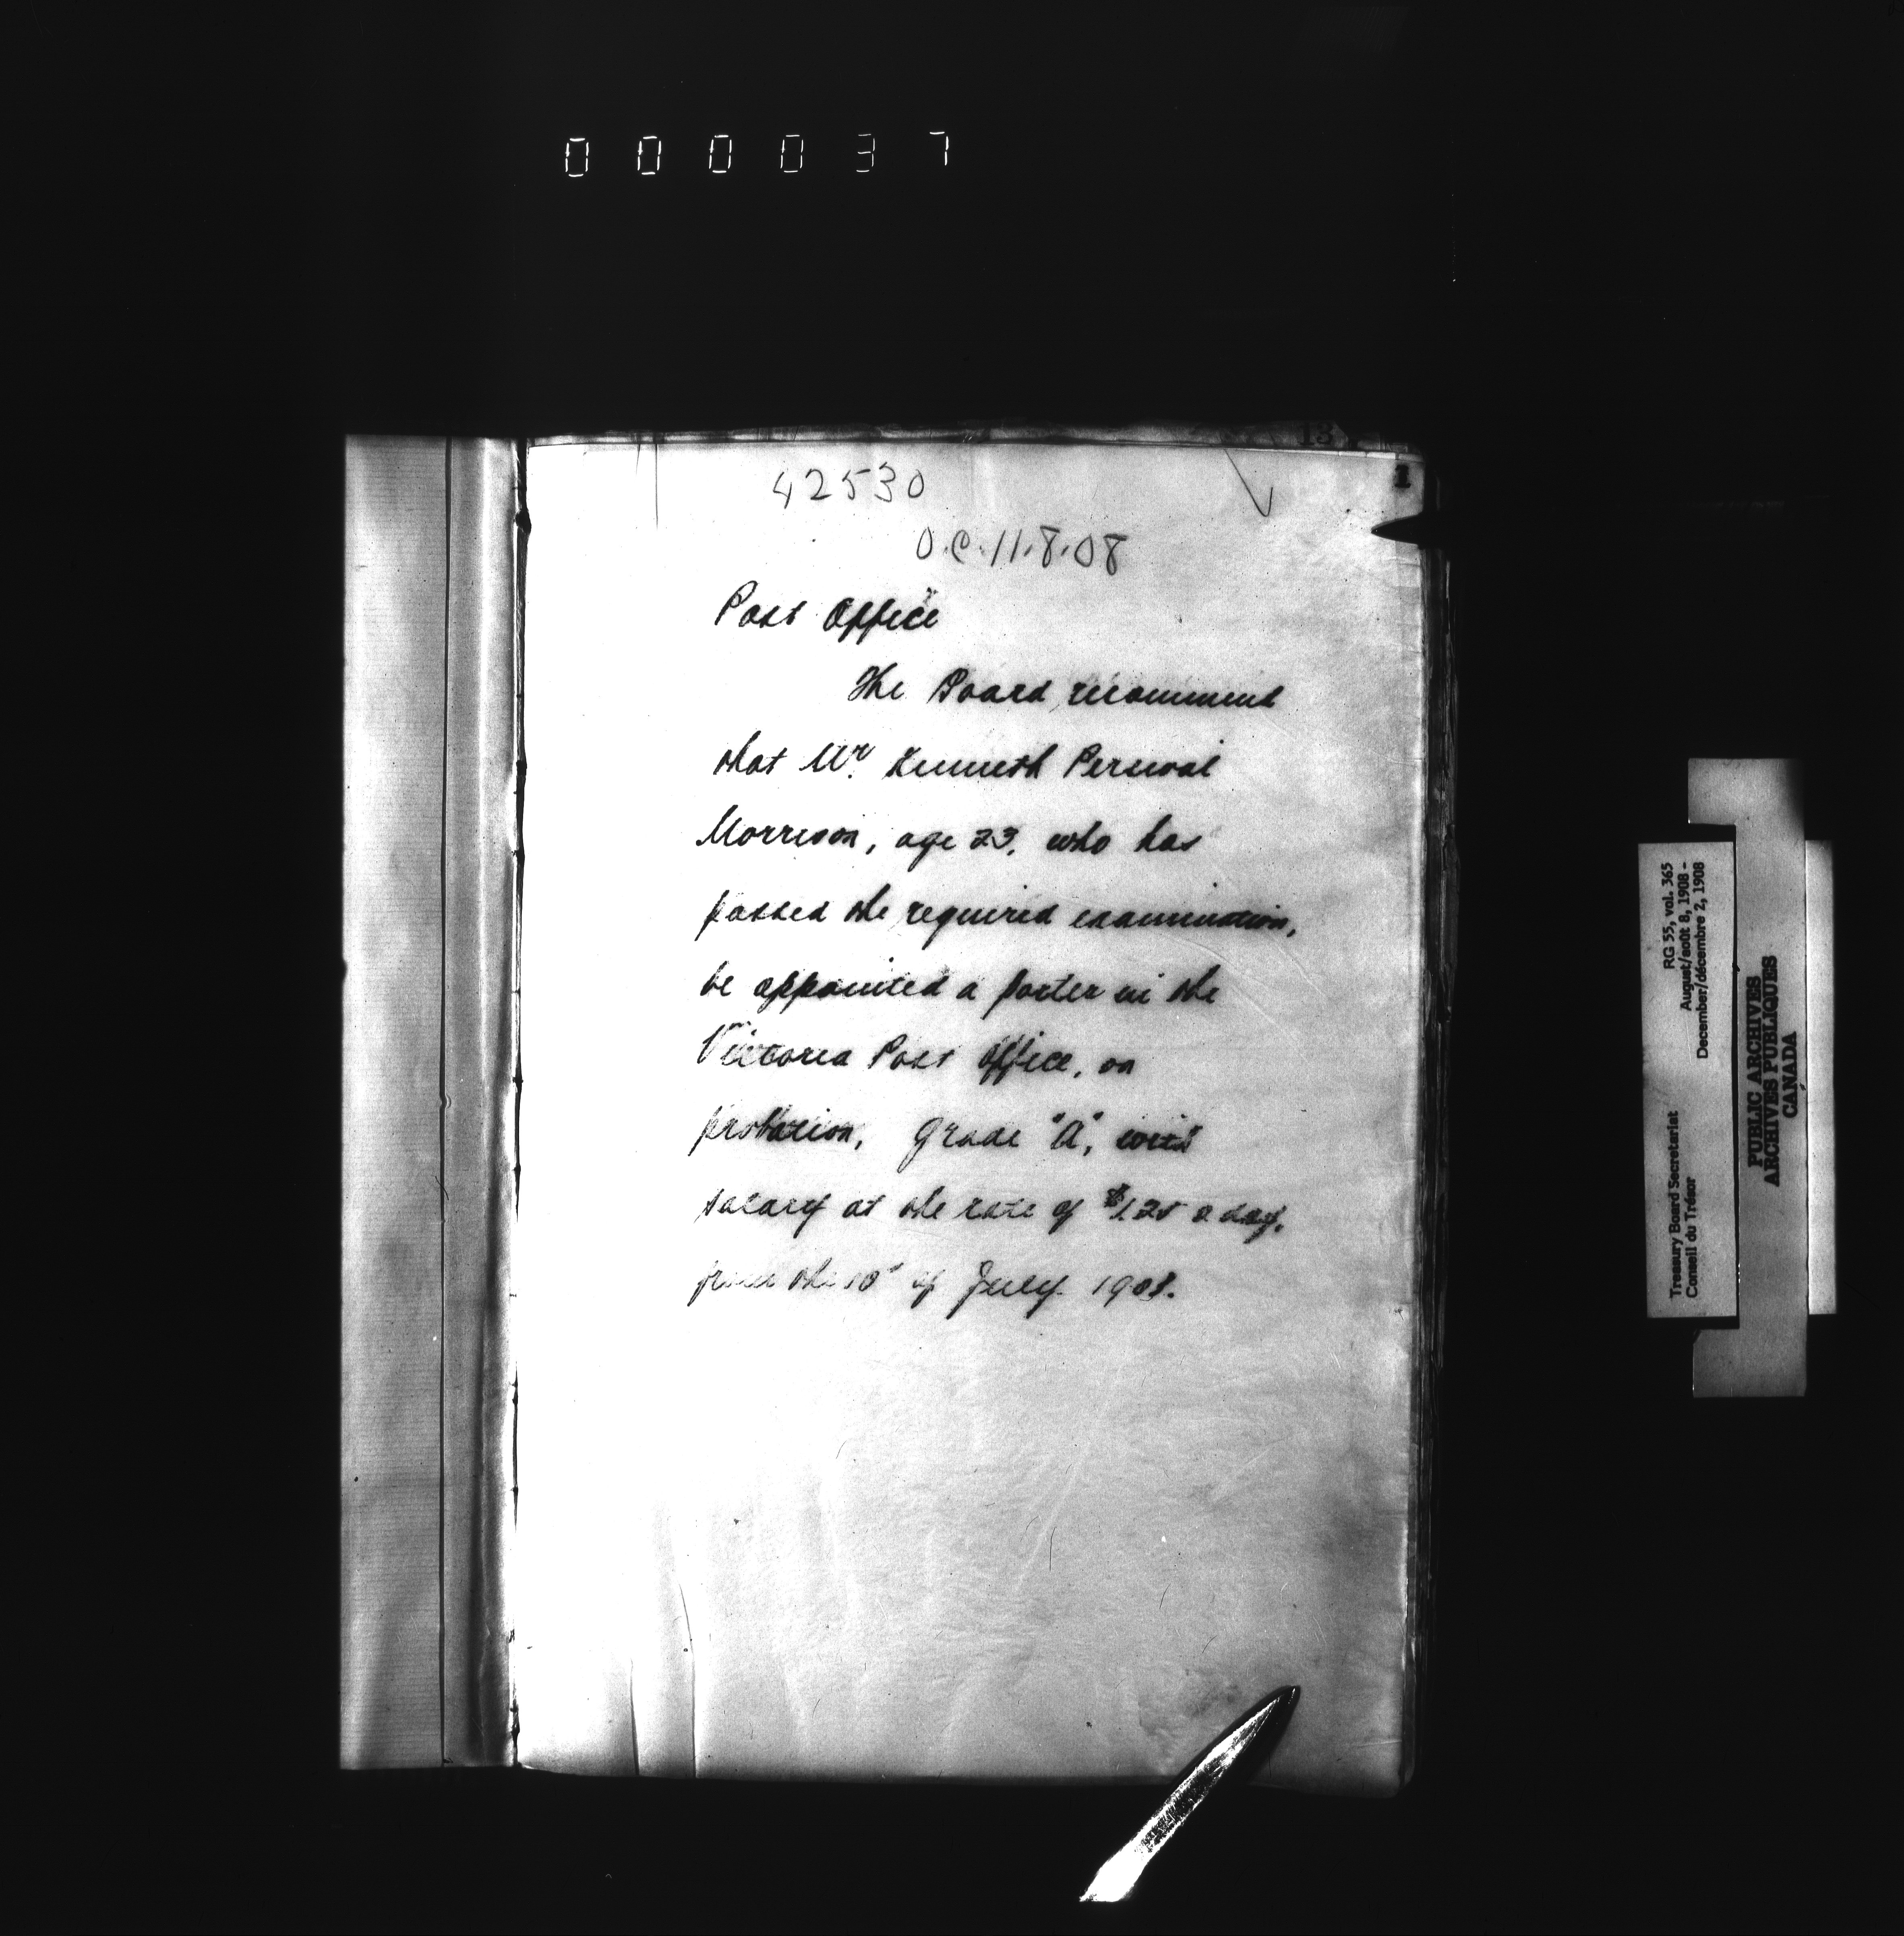 000037
13
1
42530
O.C. 11.8.08
Post Office
The Board recommend
that Mr. Kenneth Percival
Morrison, age 23, who has
passed the required examination,
be appointed a porter in the
Victoria Post Office, on
probation, Grade "A", with
salary at the rate of $1.25 a day,
from the 10th of July 1908.
RG 55, vol. 365
August/août 8, 1908 -
December/décembre 2, 1908
Treasury Board Secretariat
Conseil du Trésor
PUBLIC ARCHIVES
ARCHIVES PUBLIQUES
CANADA